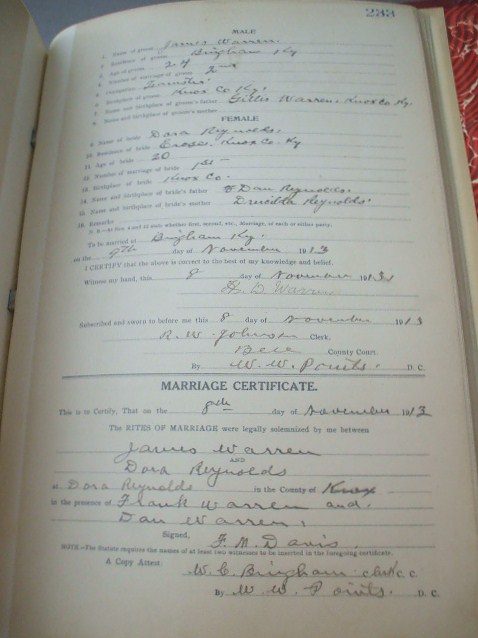 233
MALE
1. Name of groom James Warren.
2. Residence of groom Bingham Ky
3. Age of groom 24
4. Number of marriage of groom 2nd
5. Occupation Teamster
6. Birthplace of groom Knox Co Ky.
7. Name and birthplace of groom's father Gillis Warren, Knox Co. Ky.
8. Name and birthplace of groom's mother
FEMALE
9. Name of bride Dora Reynolds.
10. Residence of bride Knox Co. Ky
11. Age of bride 20
12. Number of marriage of bride 1st
13. Birthplace of bride Knox Co.
14. Name and birthplace of bride's father Dan Reynolds.
15. Name and birthplace of bride's mother Drucilla Reynolds.
16. Remarks
To be married at Bingham Ky.
on the 9th day of November 1913
I CERTIFY that the above is correct to the best of my knowledge and belief.
Witness my hand, this 8 day of November 1913
D Warren
Subscribed and sworn to before me this 8 day of November 1913
R. W. Johnson Clerk.
Bell County Court.
By W. W. Points. D. C.
MARRIAGE CERTIFICATE.
This is to Certify, That on the day of November 1913
The RITES OF MARRIAGE were legally solemnized by me between
James Warren
AND
Dora Reynolds
at Dora Reynolds in the County of Knox
in the presence of Frank Warren and
Dan Warren,
Signed, F. M. Davis.
NOTE—The Statute requires the names of at least two witnesses to be inserted in the foregoing certificate.
A Copy Attest: W. C. Bingham clerk C. C.
By W. W. Points. D. C.